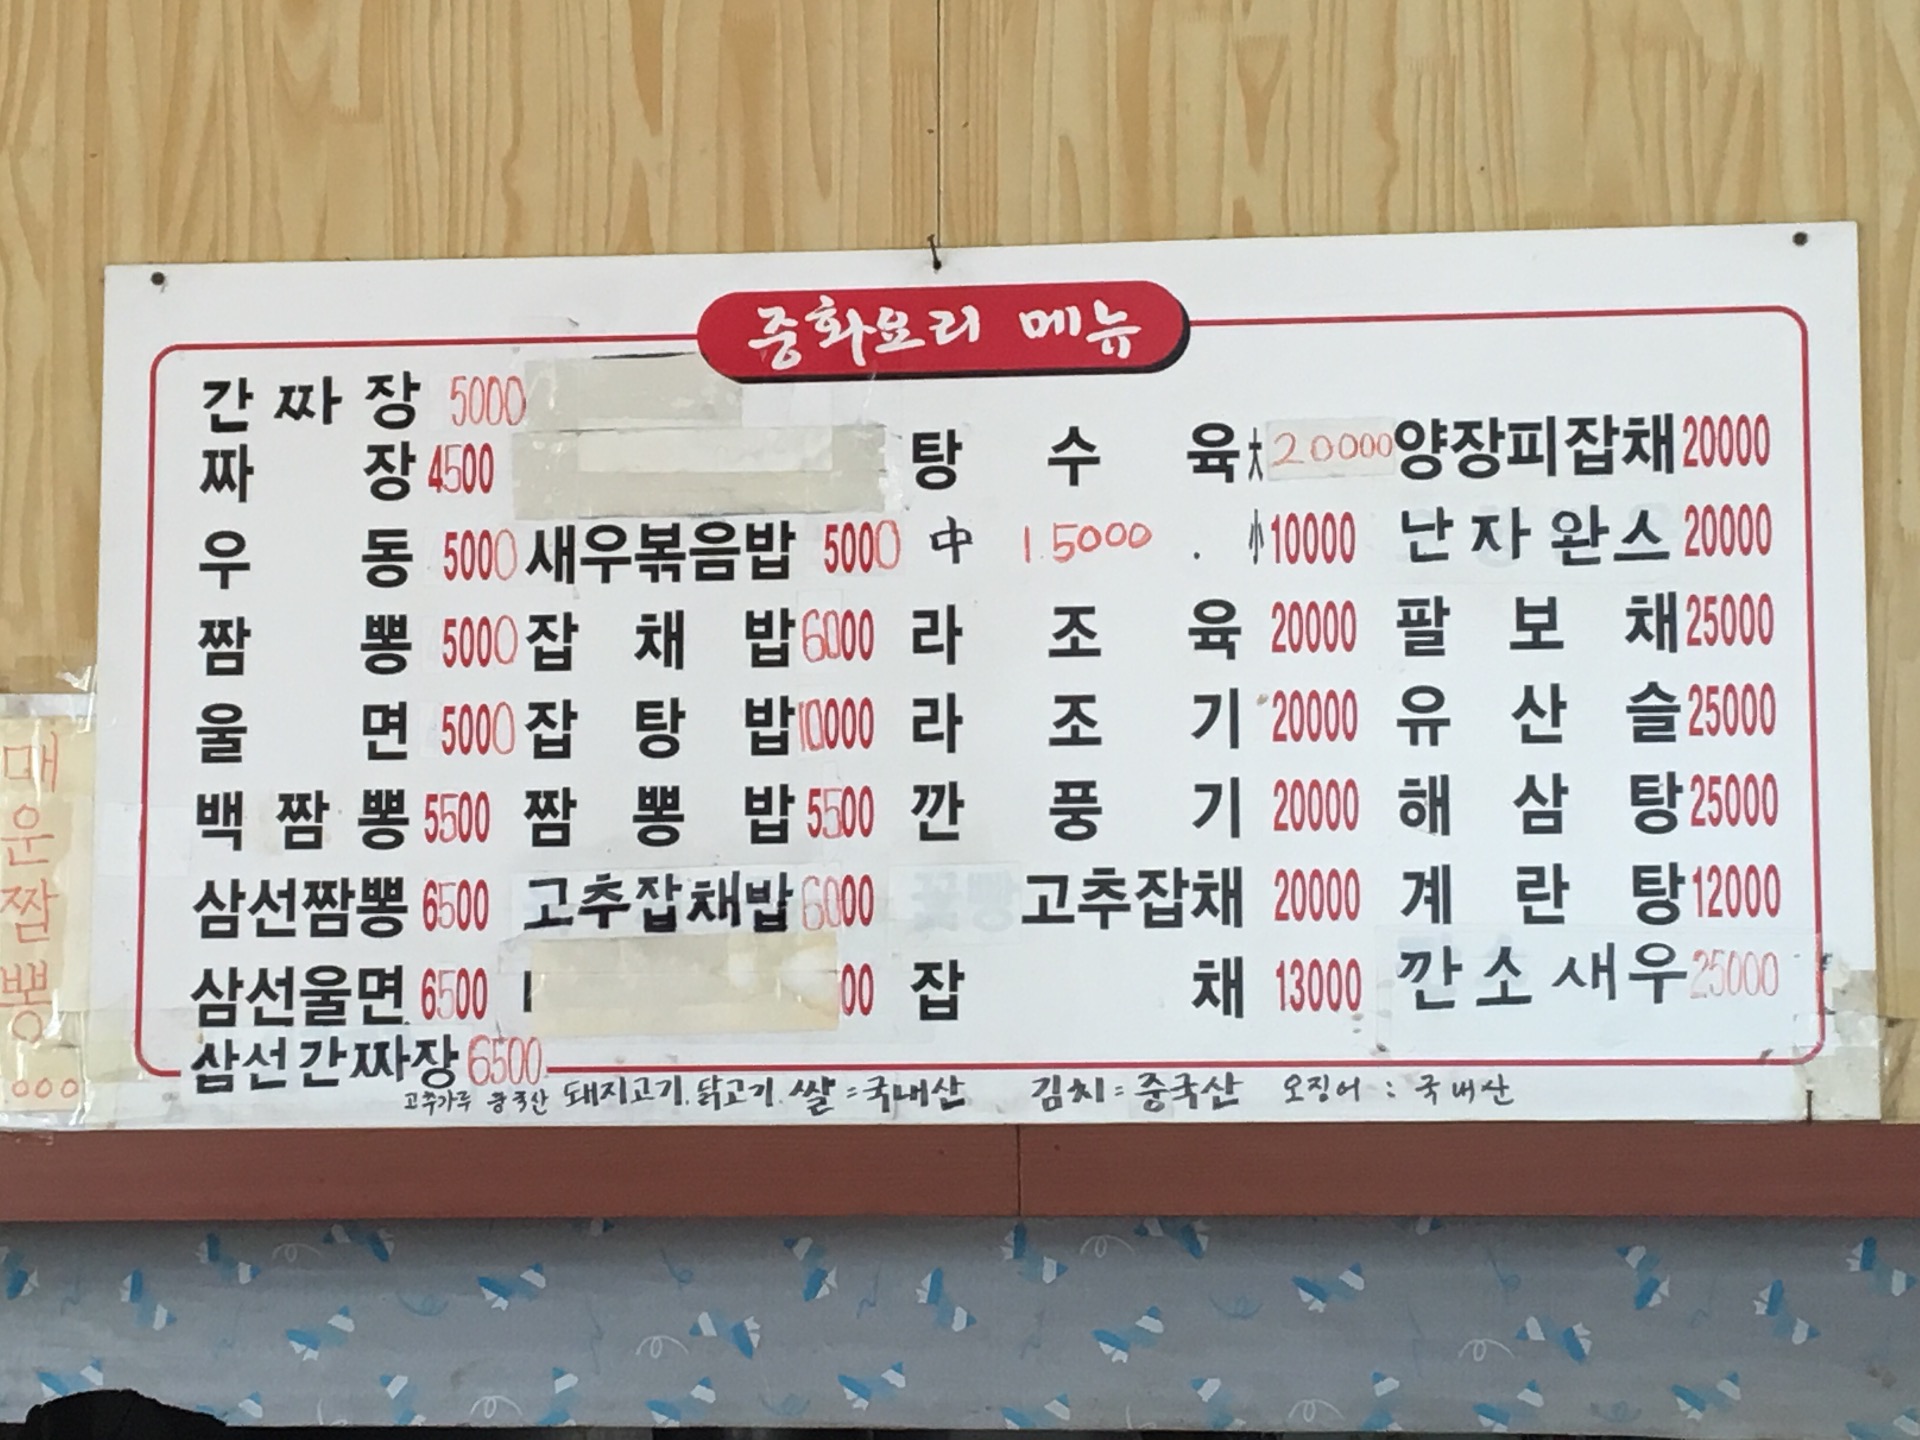 중화요리 메뉴
간짜장 5000
짜장 4500
우동 5000
짬뽕 5000
울면 5000
백짬뽕 5500
삼선짬뽕 6500
삼선울면 6500
삼선간짜장 6500
새우볶음밥 5000
잡채밥 6000
잡탕밥 10000
짬뽕밥 5500
고추잡채밥 6000
00
탕수육 大 20000
中 1.5000 . 小 10000
라조육 20000
라조기 20000
깐풍기 20000
고추잡채 20000
잡채 13000
양장피잡채 20000
난자완스 20000
팔보채 25000
유산슬 25000
해삼탕 25000
계란탕 12000
깐소새우 25000
고추가루 중국산 돼지고기. 닭고기. 쌀 = 국내산 김치 = 중국산 오징어 : 국내산
매운짬뽕